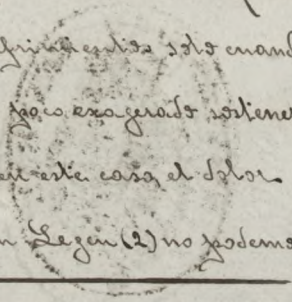 solo cuand
poco exagerado sostener
en este caso, el dolor
n Legen (2) no podemo